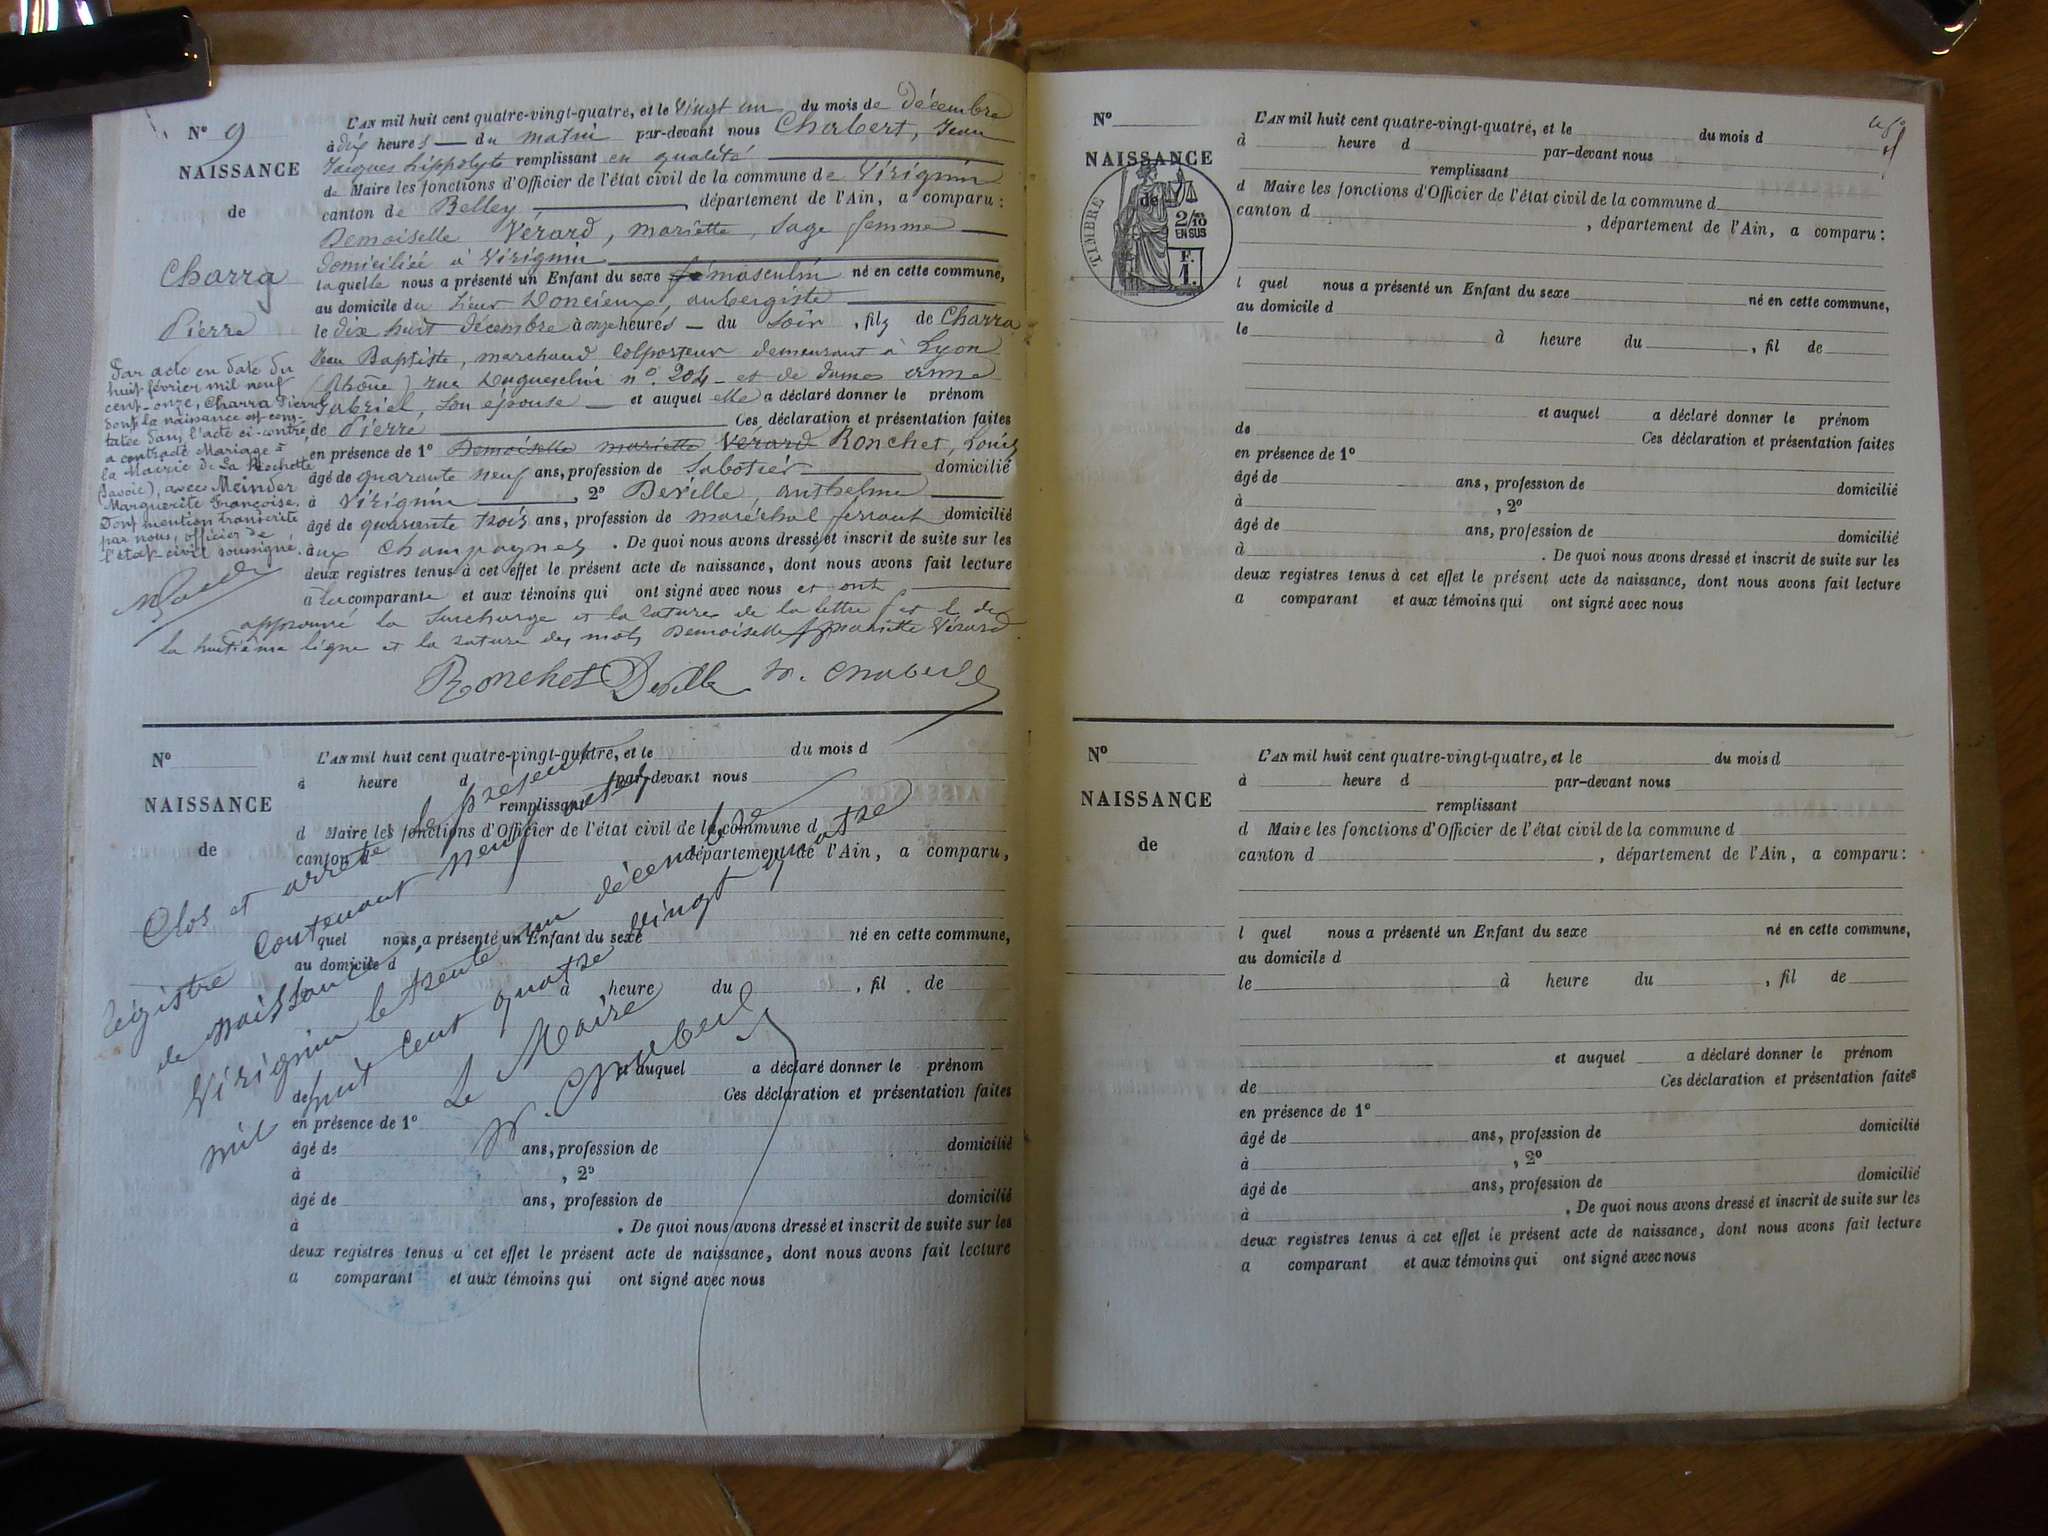 N° 9
NAISSANCE
de
Charra
Pierre
Par acte en date du
huit février mil neuf
cent-onze, Charra Pierre
dont la naissance est cons-
tatée dans l'acte ci-contre,
a contracté Mariage à
la Mairie de La Rochette
(Savoie), avec Meinder
Marguerite Françoise.
Dont mention transcrite
par nous, officier de
l'état-civil soussigné.
L'AN mil huit cent quatre-vingt-quatre, et le vingt un du mois de décembre
à dix heures du matin par-devant nous Chabert, Jean
Jacques hippolyte remplissant en qualité
de Maire les fonctions d'Officier de l'état civil de la commune de Virignin
canton de Belley, département de l'Ain, a comparu :
Demoiselle Vérard, mariette, Sage femme
domiciliée à Virignin
laquelle nous a présenté un Enfant du sexe masculin né en cette commune,
au domicile du sieur Doncieux, aubergiste
le dix huit décembre à onze heures du soir, fils de Charra
Jean Baptiste, marchand Colporteur demeurant à Lyon
(Rhône) rue Duguesclin n° 204 et de dame anna
Gabriel, son épouse et auquel elle a déclaré donner le prénom
de Pierre Ces déclaration et présentation faites
en présence de 1° Demoiselle mariette Vérard Ronchet, Louis
âgé de quarante neuf ans, profession de Sabotier domicilié
à Virignin, 2° Deville, anthelme
âgé de quarante trois ans, profession de maréchal ferrant domicilié
aux Champagnes. De quoi nous avons dressé et inscrit de suite sur les
deux registres tenus à cet effet le présent acte de naissance, dont nous avons fait lecture
à la comparante et aux témoins qui ont signé avec nous et ont
approuvé la Surcharge et la rature de la lettre f et l de
la huitième ligne et la rature des mots Demoiselle mariette Vérard.
Ronchet Deville h. Chabert
N°
NAISSANCE
de
L'AN mil huit cent quatre-vingt-quatre, et le du mois d
à heure d par-devant nous
remplissant
d Maire les fonctions d'Officier de l'état civil de la commune d
canton d département de l'Ain, a comparu,
quel nous a présenté un Enfant du sexe né en cette commune,
au domicile d
à heure du , fil de
et auquel a déclaré donner le prénom
de Ces déclaration et présentation faites
en présence de 1°
âgé de ans, profession de domicilié
à , 2°
âgé de ans, profession de domicilié
à . De quoi nous avons dressé et inscrit de suite sur les
deux registres tenus à cet effet le présent acte de naissance, dont nous avons fait lecture
a comparant et aux témoins qui ont signé avec nous
Clos et arrêté le présent
Registre contenant neuf actes
de naissances,
Virignin le trente un décembre
mil huit cent quatre vingt quatre
Le Maire
h. Chabert
N°
NAISSANCE
de
TIMBRE
2/10
EN SUS
F.
1.
L'AN mil huit cent quatre-vingt-quatre, et le du mois d
à heure d par-devant nous
remplissant
d Maire les fonctions d'Officier de l'état civil de la commune d
canton d , département de l'Ain, a comparu :
l quel nous a présenté un Enfant du sexe né en cette commune,
au domicile d
le à heure du , fil de
et auquel a déclaré donner le prénom
de Ces déclaration et présentation faites
en présence de 1°
âgé de ans, profession de domicilié
à , 2°
âgé de ans, profession de domicilié
à . De quoi nous avons dressé et inscrit de suite sur les
deux registres tenus à cet effet le présent acte de naissance, dont nous avons fait lecture
a comparant et aux témoins qui ont signé avec nous
N°
NAISSANCE
de
L'AN mil huit cent quatre-vingt-quatre, et le du mois d
à heure d par-devant nous
remplissant
d Maire les fonctions d'Officier de l'état civil de la commune d
canton d , département de l'Ain, a comparu :
l quel nous a présenté un Enfant du sexe né en cette commune,
au domicile d
le à heure du , fil de
et auquel a déclaré donner le prénom
de Ces déclaration et présentation faites
en présence de 1°
âgé de ans, profession de domicilié
à , 2°
âgé de ans, profession de domicilié
à . De quoi nous avons dressé et inscrit de suite sur les
deux registres tenus à cet effet le présent acte de naissance, dont nous avons fait lecture
a comparant et aux témoins qui ont signé avec nous